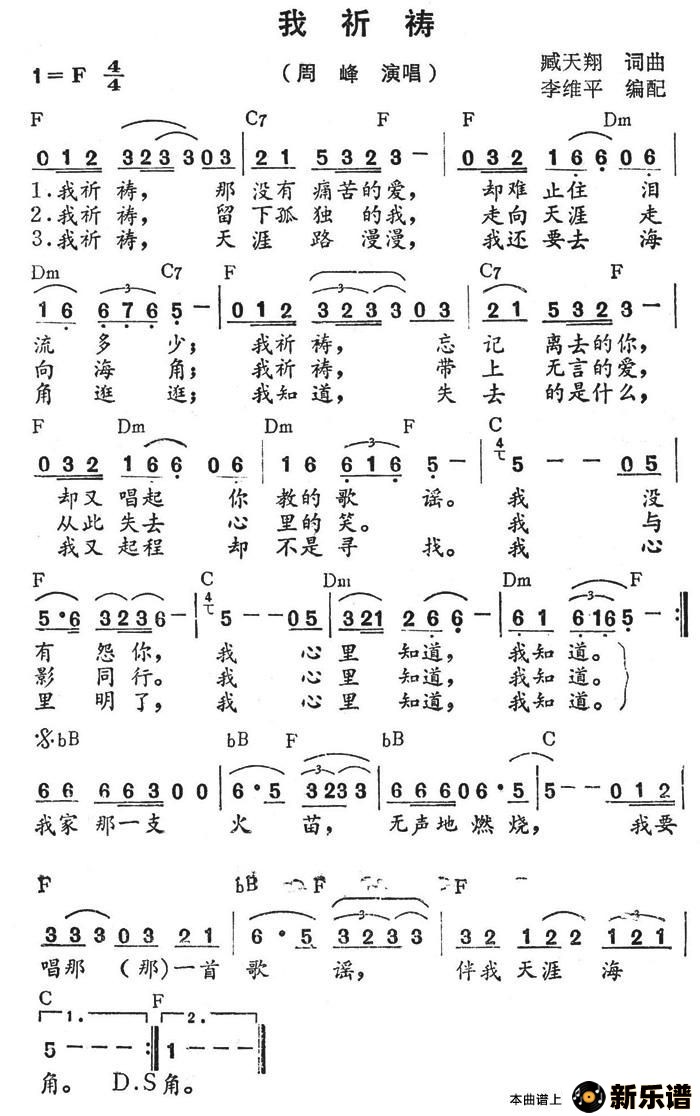 我 祈 祷
1=F 4/4
（周 峰 演唱）
臧天翔 词曲
李维平 编配
F C7 F F Dm
0 1 2 3 2 3 3 0 3 | 2 1 5 3 2 3 — | 0 3 2 1 6 6 0 6
1.我祈祷， 那没有痛苦的爱， 却难止住 泪
2.我祈祷， 留下孤独的我， 走向天涯 走
3.我祈祷， 天涯路漫漫， 我还要去 海
Dm C7 F C7 F
1 6 6 7 6 5 — | 0 1 2 3 2 3 3 0 3 | 2 1 5 3 2 3 — |
流多少； 我祈祷， 忘记离去的你，
向海角； 我祈祷， 带上无言的爱，
角逛逛； 我知道， 失去的是什么，
F Dm Dm F C
0 3 2 1 6 6 0 6 | 1 6 6 1 6 5 — | 4/4 5 — 0 5
却又唱起 你教的歌谣。 我 没
从此失去 心里的笑。 我 与
我又起程 却不是寻找。 我 心
F C Dm Dm F
5·6 3 2 3 6 — | 4/4 5 — 0 5 | 3 2 1 2 6 6 — | 6 1 6 1 6 5 — :‖
有怨你， 我 心里知道， 我知道。
影同行。 我 心里知道， 我知道。
里明了， 我 心里知道， 我知道。
𝄋 bB bB F bB C
6 6 6 6 3 0 0 | 6·5 3 2 3 3 | 6 6 6 0 6·5 | 5 — 0 1 2
我家那一支 火苗， 无声地燃烧， 我要
F bB F F
3 3 3 0 3 2 1 | 6·5 3 2 3 3 | 3 2 1 2 2 1 2 1
唱那（那）一首 歌谣， 伴我天涯海
C F
1. 2.
5 — — :‖ 1 — ‖
角。 D.S角。
本曲谱上 新乐谱